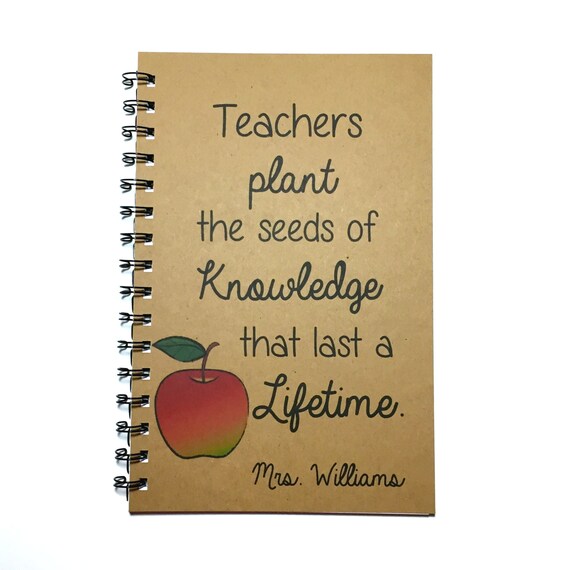 Teachers
plant
the seeds of
Knowledge
that last a
Lifetime.
Mrs. Williams